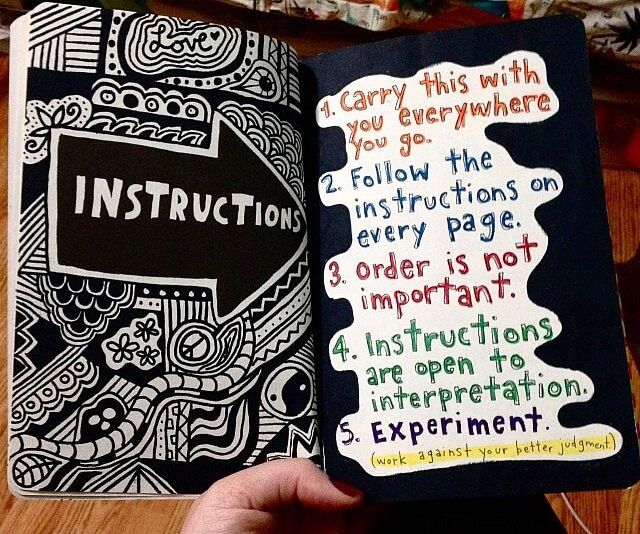 Love
INSTRUCTIONS
1. Carry this with
you everywhere
you go.
2. Follow the
instructions on
every page.
3. order is not
important.
4. Instructions
are open to
interpretation.
5. Experiment.
(work against your better judgment.)